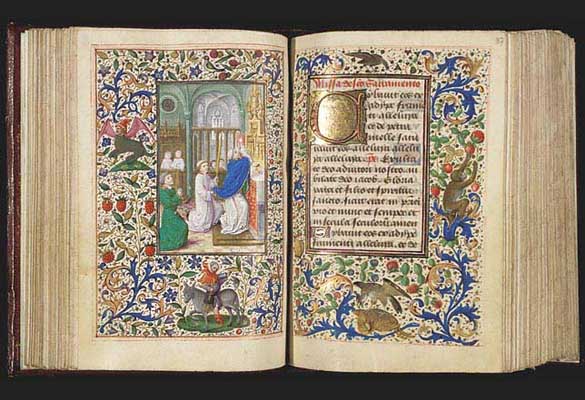 Missa de sco Sacramento
Cybauit eos ex
adype frum
et alleluya
et de petra
melle satu
rauit eos alleluya allelu
ya alleluya. ps. Exulta
te deo adiutori nostro iu
bilate deo iacob. Gloria
patri et filio et spiritui
sancto sicut erat in prin
cipio et nunc et semper et
in secula seculorum amen
Cybauit eos ex adype fr
umenti alleluya. et de